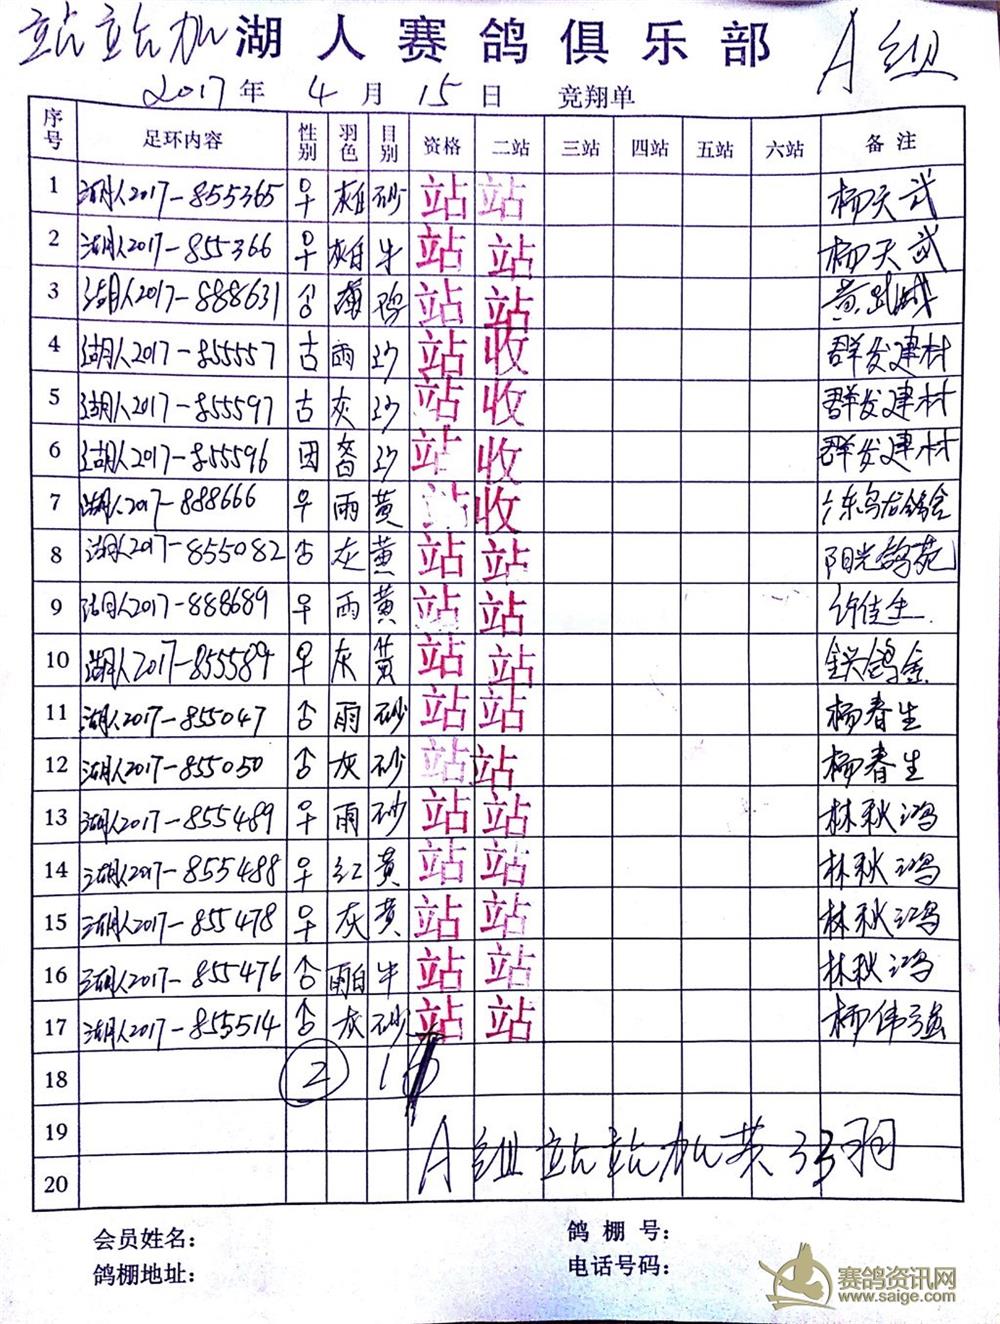 站站加 湖人赛鸽俱乐部 A组
2017 年 4 月 15 日 竞翔单
序号 足环内容 性别 羽色 目别 资格 二站 三站 四站 五站 六站 备注
1 湖人2017-855365 ♀ 灰白 砂 站 站 杨天武
2 湖人2017-855366 ♀ 灰白 牛 站 站 杨天武
3 湖人2017-888631 站 站
4 湖人2017-855557 雨 沙 站 收 群发建材
5 湖人2017-855597 灰 沙 站 收 群发建材
6 湖人2017-855596 沙 站 收 群发建材
7 湖人2017-888666 ♀ 雨 黄 站 收
8 湖人2017-855082 ♂ 灰 黄 站 站 阳光鸽苑
9 湖人2017-888689 ♀ 雨 黄 站 站 许佳生
10 湖人2017-855589 ♀ 灰 黄 站 站
11 湖人2017-855047 ♂ 雨 砂 站 站 杨春生
12 湖人2017-855050 ♂ 灰 砂 站 站 杨春生
13 湖人2017-855489 ♀ 雨 砂 站 站 林秋鸿
14 湖人2017-855488 ♀ 红 黄 站 站 林秋鸿
15 湖人2017-855478 ♀ 灰 黄 站 站 林秋鸿
16 湖人2017-855476 ♂ 雨白 牛 站 站 林秋鸿
17 湖人2017-855514 ♂ 灰 砂 站 站 杨伟强
18 ②
19 A组站站加共33羽
20
会员姓名: 鸽棚号:
鸽棚地址: 电话号码:
赛鸽资讯网
www.saige.com